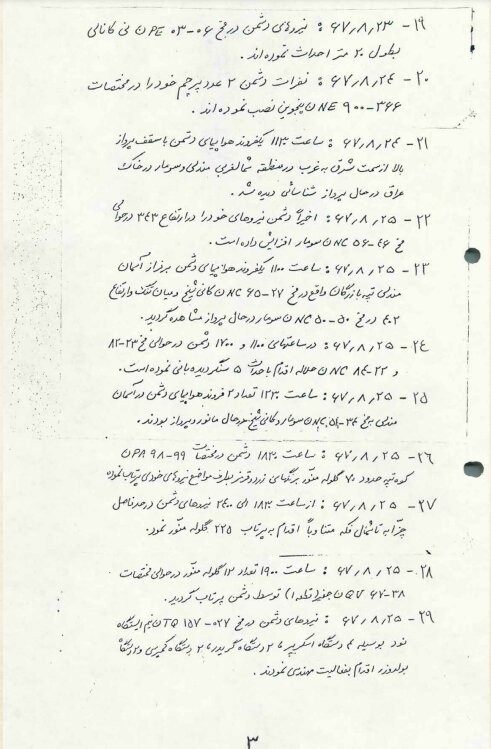 ۱۹- ۶۷٫۸٫۲۳ : نیروهای دشمن در مخ ۰۶-۰۳ PE فی کانالی
بطول ۲۰ متر احداث نموده اند.
۲۰- ۶۷٫۸٫۲۴ : نفرات دشمن ۲ عدد پرچم خود را در مختصات
۳۶۶-۹۰۰ NE پنجوین نصب نموده اند.
۲۱- ۶۷٫۸٫۲۴ : ساعت ۱۱۳۰ یکفروند هواپیمای دشمن با سقف پرواز
بالا از سمت شرق به غرب در منطقه شمالغربی مندلی و سومار در خاک
عراق در حال پرواز شناسائی دیده شد.
۲۲- ۶۷٫۸٫۲۵ : اخیراً دشمن نیروهای خود را در ارتفاع ۳۴۳ در حوالی
مخ ۴۶-۵۶ NC سومار افزایش داده است.
۲۳- ۶۷٫۸٫۲۵ : ساعت ۱۱۰۰ یکفروند هواپیمای دشمن بر فراز آسمان
مندلی تپه بازرگان واقع در مخ ۲۷-۶۵ NC کانی شیخ و میان تنگ و ارتفاع
۴۰۲ در مخ ۵۰-۵۰ NC سومار در حال پرواز مشاهده گردید.
۲۴- ۶۷٫۸٫۲۵ : در ساعتهای ۱۱۰۰ و ۱۷۰۰ دشمن در حوالی مخ ۲۳-۸۲
و ۲۲-۸۴ NC اقدام باحداث ۵ سنگر دیده بانی نموده است.
۲۵- ۶۷٫۸٫۲۵ : ساعت ۱۲۳۰ تعداد ۲ فروند هواپیمای دشمن در آسمان
مندلی مخ ۳۴-۵۱ NC سومار و کانی شیخ در حال مانور و پرواز بودند.
۲۶- ۶۷٫۸٫۲۵ : ساعت ۱۸۳۰ دشمن در مختصات ۹۹-۹۸ PA
کوه تپه حدود ۷۰ گلوله منور برنگهای زرد و قرمز بطرف مواضع نیروهای خودی پرتاب نموده
۲۷- ۶۷٫۸٫۲۵ : از ساعت ۱۸۳۰ الی ۲۴۰۰ نیروهای دشمن در حد فاصل
چزابه تا شمال فکه متناوباً اقدام به پرتاب ۲۲۵ گلوله منور نمود.
۲۸- ۶۷٫۸٫۲۵ : ساعت ۱۹۰۰ تعداد ۱۲ گلوله منور در حوالی مختصات
۳۸-۶۷ QV توسط دشمن پرتاب گردید.
۲۹- ۶۷٫۸٫۲۵ : نیروهای دشمن در مخ ۰۲۷-۱۵۷ TQ ایستگاه
نود بوسیله ۴ دستگاه اسکریپر، ۲ دستگاه گریدر، ۲ دستگاه کمپرسی و ۲ دستگاه
بولدوزر اقدام بفعالیت مهندسی نمودند.
۳